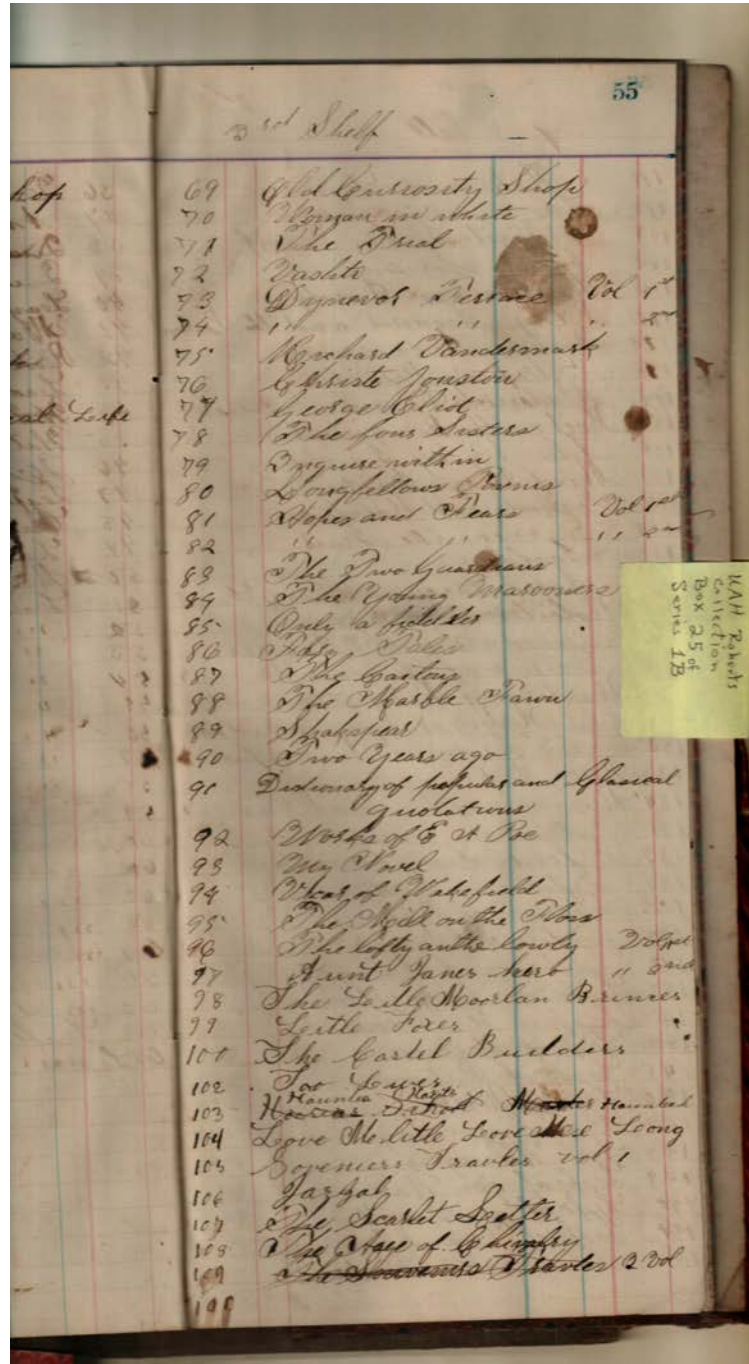 55
3rd Shelf
hop
69 Old Curiosity Shop
70 Woman in white
71 The Trial
72 Vashti
73 Dynevor Terrace Vol 1st
74 " " "
75 Richard Vandermark
76 Christie Jonston
cal Life
77 George Eliot
78 The four Sisters
79 Enquire within
80 Longfellows Poems
81 Hopes and Fears Vol 1st
82 " " "
83 The Two Guardians
84 The Young Marooners
85 Only a fiddler
86 Tales
87 The Caxtons
88 The Marble Fawn
89 Shakspear
90 Two Years ago
91 Dictionary of popular and Classical
quotations
92 Works of E A Poe
93 My Novel
94 Vicar of Wakefield
95 The Mill on the Floss
96 The lofty an the lowly Vol 1st
97 Aunt Janes hero " 2nd
98 The Little Moorlan Princes
99 Little Foxes
100 The Castel Builders
102
103 Haunted
104 Love Me little Love Me Leong
105 Soveniers Travler vol 1
106
107 The Scarlet Letter
108 The Age of Chivalry
109 The Souvenirs Travler 2 Vol
UAH Roberts
collection
Box 25 of
Series 1B